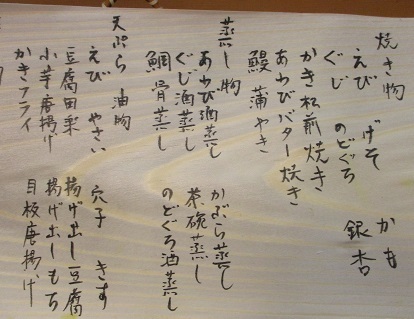 焼き物　げそ　かも
えび　のどぐろ　銀杏
ぐじ
かき松前焼き
あわびバター焼き
鰻蒲やき
蒸し物
あわび酒蒸し　かぶら蒸し
ぐじ酒蒸し　茶碗蒸し
鯛骨蒸し　のどぐろ酒蒸し
天ぷら　油物
えび　やさい　穴子　きす
豆腐田楽　揚げ出し豆腐
小芋唐揚げ　揚げ出しもち
かきフライ　目板唐揚げ